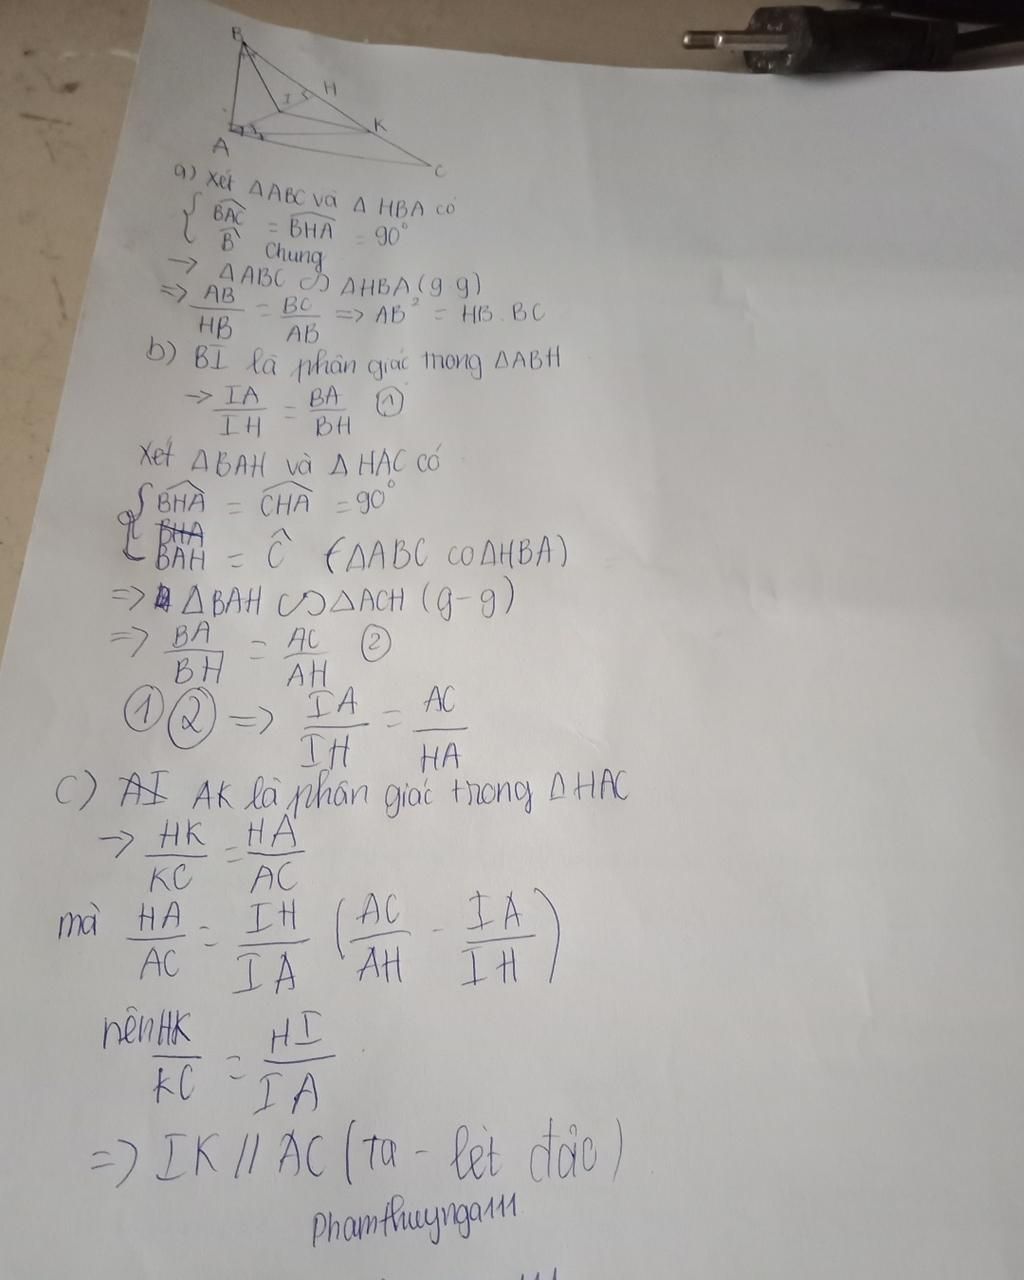 B
H
I
K
A
C
a) Xét ΔABC và Δ HBA có
{ BAC^ = BHA^ = 90°
B^ Chung
→ ΔABC ∽ ΔHBA (g.g)
=> AB/HB = BC/AB => AB² = HB.BC
b) BI là phân giác trong ΔABH
→ IA/IH = BA/BH ①
Xét ΔBAH và Δ HAC có
{ BHA^ = CHA^ = 90°
BHA
BAH = C^ (ΔABC ∽ ΔHBA)
=> ΔBAH ∽ ΔACH (g-g)
=> BA/BH = AC/AH ②
① ② => IA/IH = AC/HA
c) AI AK là phân giác trong ΔHAC
→ HK/KC = HA/AC
mà HA/AC = IH/IA (AC/AH - IA/IH)
nên HK/KC = HI/IA
=> IK // AC (Ta-lét đảo)
Phamthuynga111